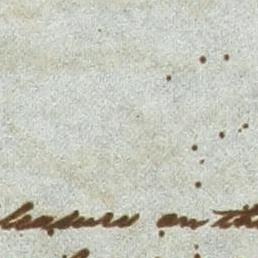 leasure on th